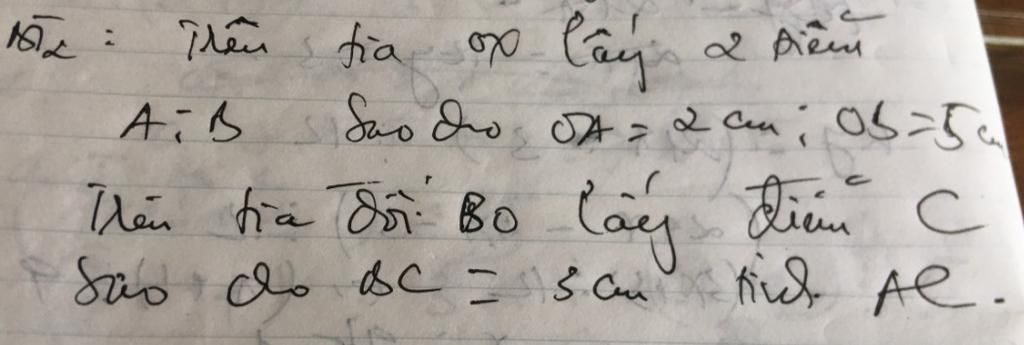 B2 : Trên tia ox lấy 2 điểm
A; B Sao cho OA = 2 cm; OB = 5 cm
Trên tia đối BO lấy điểm C
Sao cho BC = 3 cm tính AC.